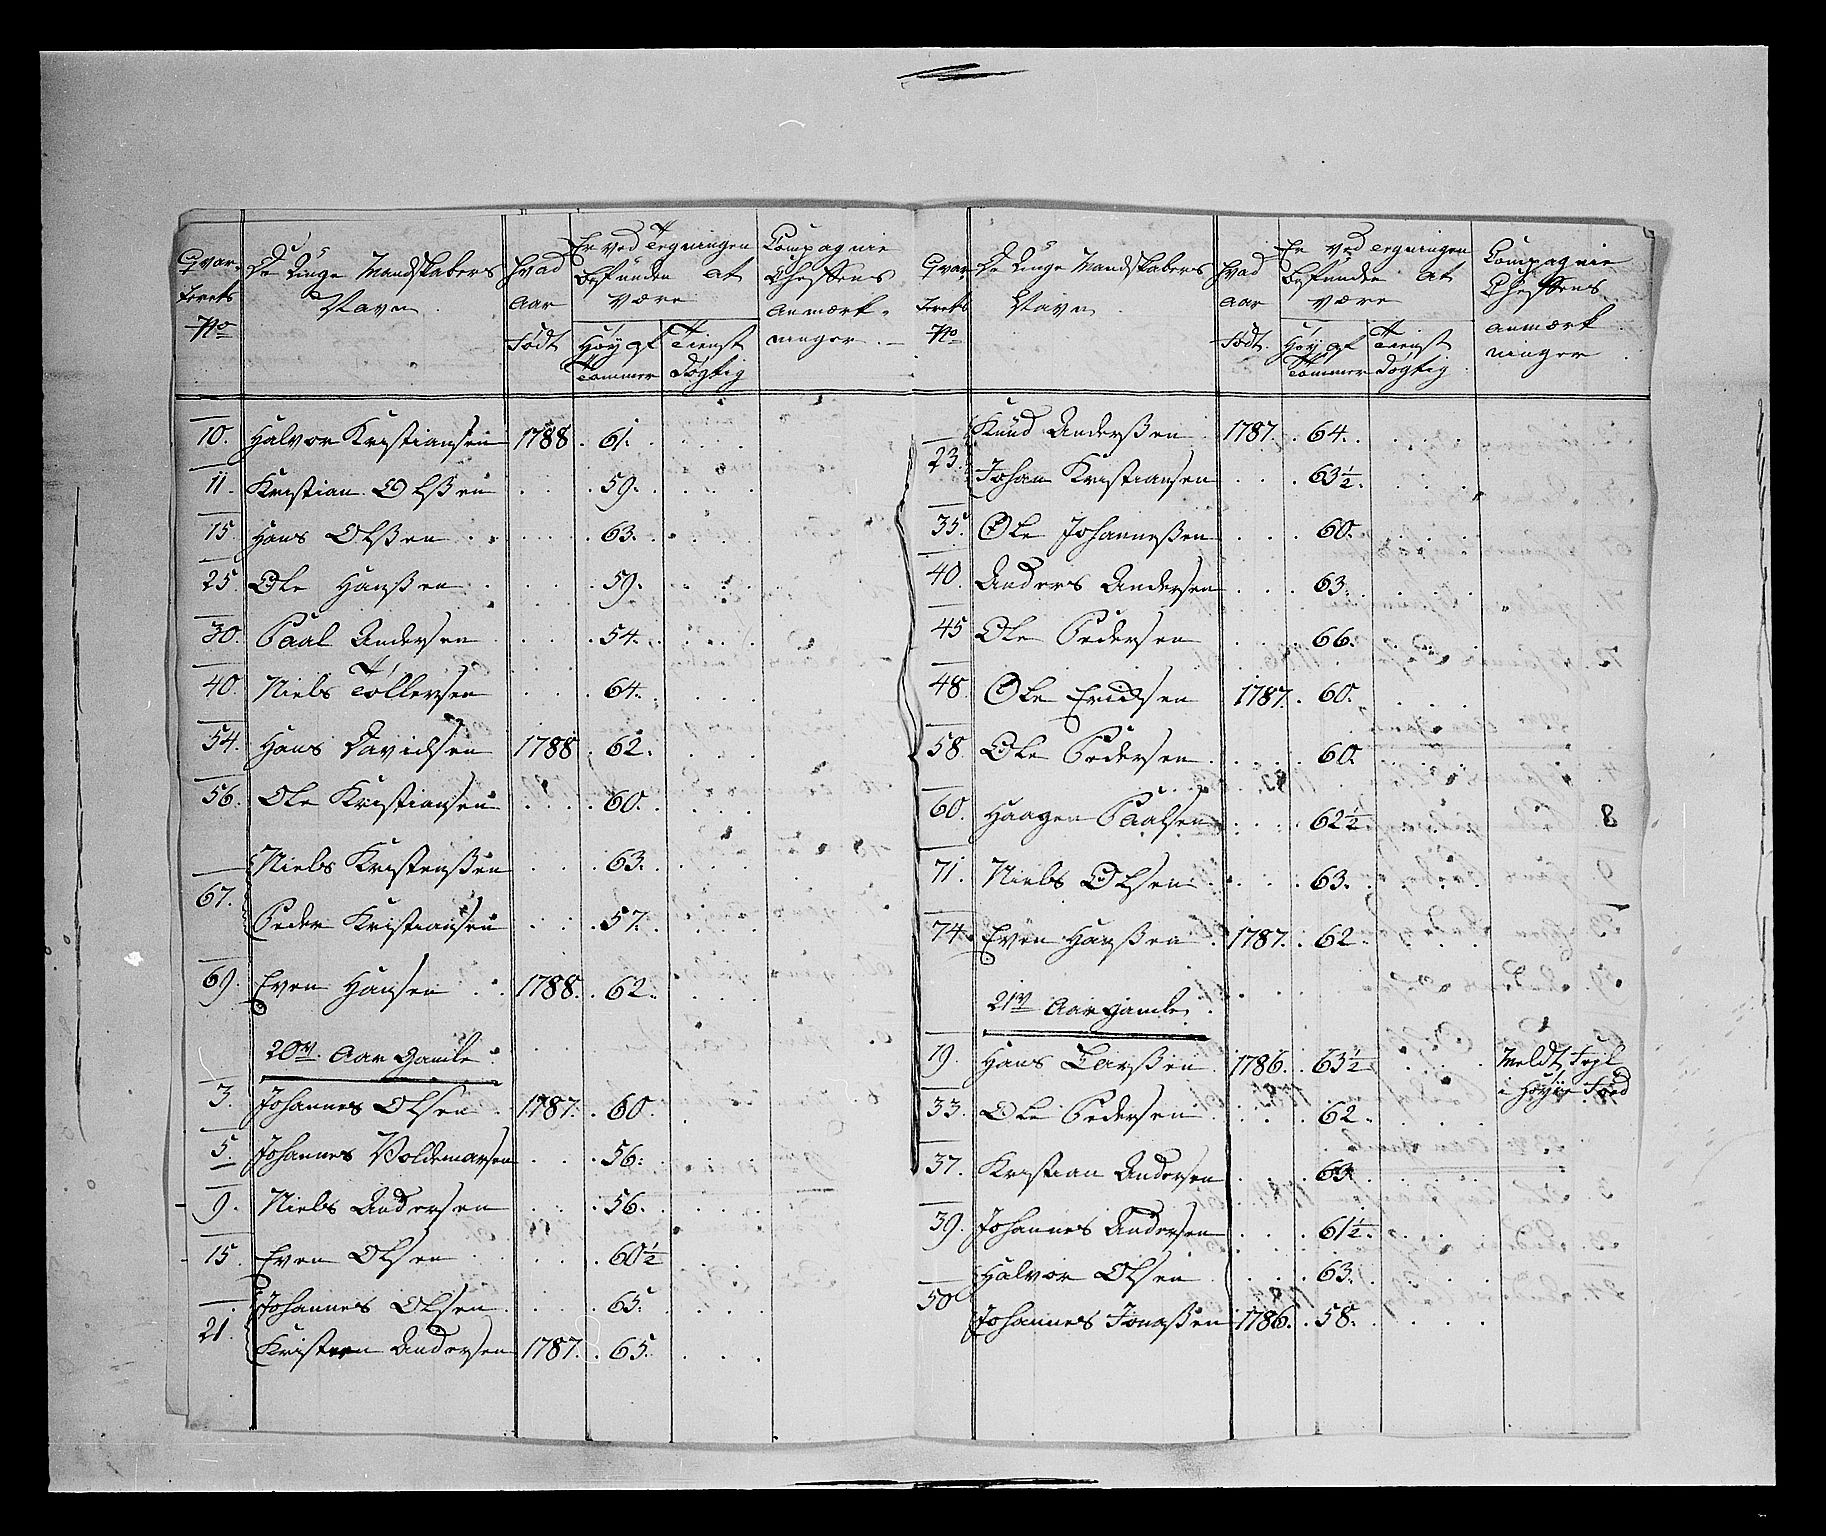 Qvar-
terets
No
De Unge Mandskabers
Navn
Hvad
Aar
Födt
Er ved Tegningen
befunden at
være
Höy af
Tommer
Tienst
Dögtig
Compagnie
Cheffens
Anmærk-
ninger
10. Halvor Kristiansen 1788. 61.
11. Kristian Olßen 59.
15. Hans Olßen 63.
25. Ole Hanßen 59.
30. Paal Andersen 54.
40. Niels Töllersen 64.
54. Hans Davidsen 1788. 62.
56. Ole Kristiansen 60.
Niels Kristenßen 63.
67.
Peder Kristiansen 57.
69. Even Hansen 1788. 62.
20ve Aar Gamle
3. Johannes Olsen 1787. 60.
5. Johannes Voldemarsen 56.
9. Niels Andersen 56.
15. Even Olsen 60½
Johannes Olsen 65.
21.
Kristen Andersen 1787. 65.
Qvar
terets
No
De Unge Mandskabers
Navn
Hvad
Aar
Födt.
Er ved Tegningen
befunden at
være
Höy af
Tommer
Tienst
Dögtig
Compagnie
Cheffens
Anmærk
ninger
Knud Anderßen 1787. 64.
23.
Johan Kristiansen 63½.
35. Ole Johanneßen 60.
40. Anders Andersen 63.
45 Ole Pedersen 66.
48. Ole Ericksen 1787. 60.
58. Ole Pedersen 60.
60. Haagen Paalsen 62½.
71. Niels Olsen 63.
74. Even Hanßen 1787. 62.
21ve Aar Gamle
19. Hans Larßen 1786. 63½ Meldt
i
33. Ole Pedersen 62.
37. Kristian Andersen 63.
39. Johannes Andersen 61½.
Halvor Olsen 63.
50
Johannes Jonaßen 1786. 58.